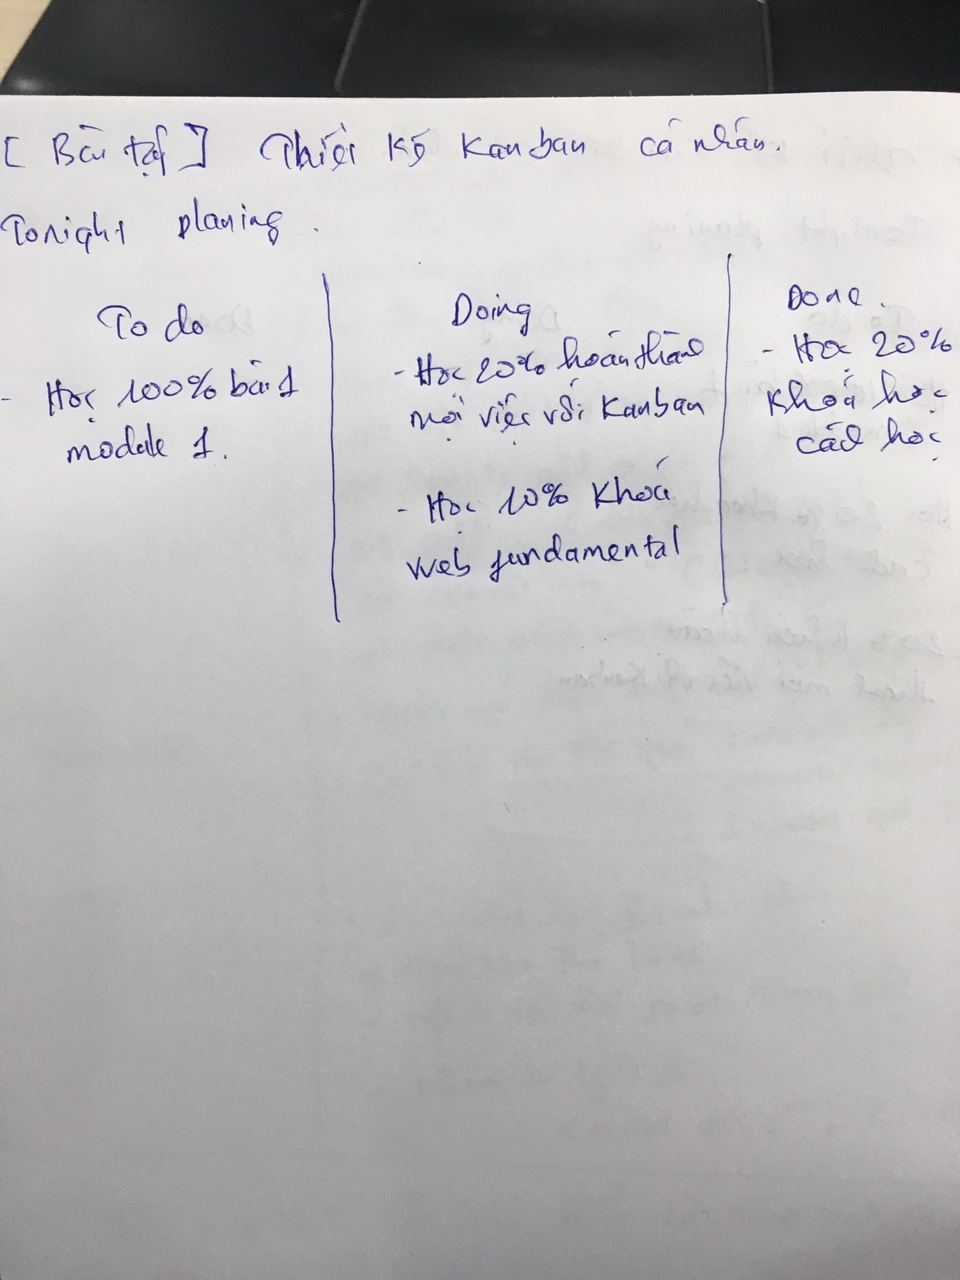 [ Bài tập ] Thiết kế Kanban cá nhân.
Tonight planing .
To do
- Học 100% bài 1
module 1.
Doing
- Học 20% hoàn thành
mọi việc với Kanban
- Học 10% Khoá
web fundamental
Done .
- Học 20%
khoá học
cách học